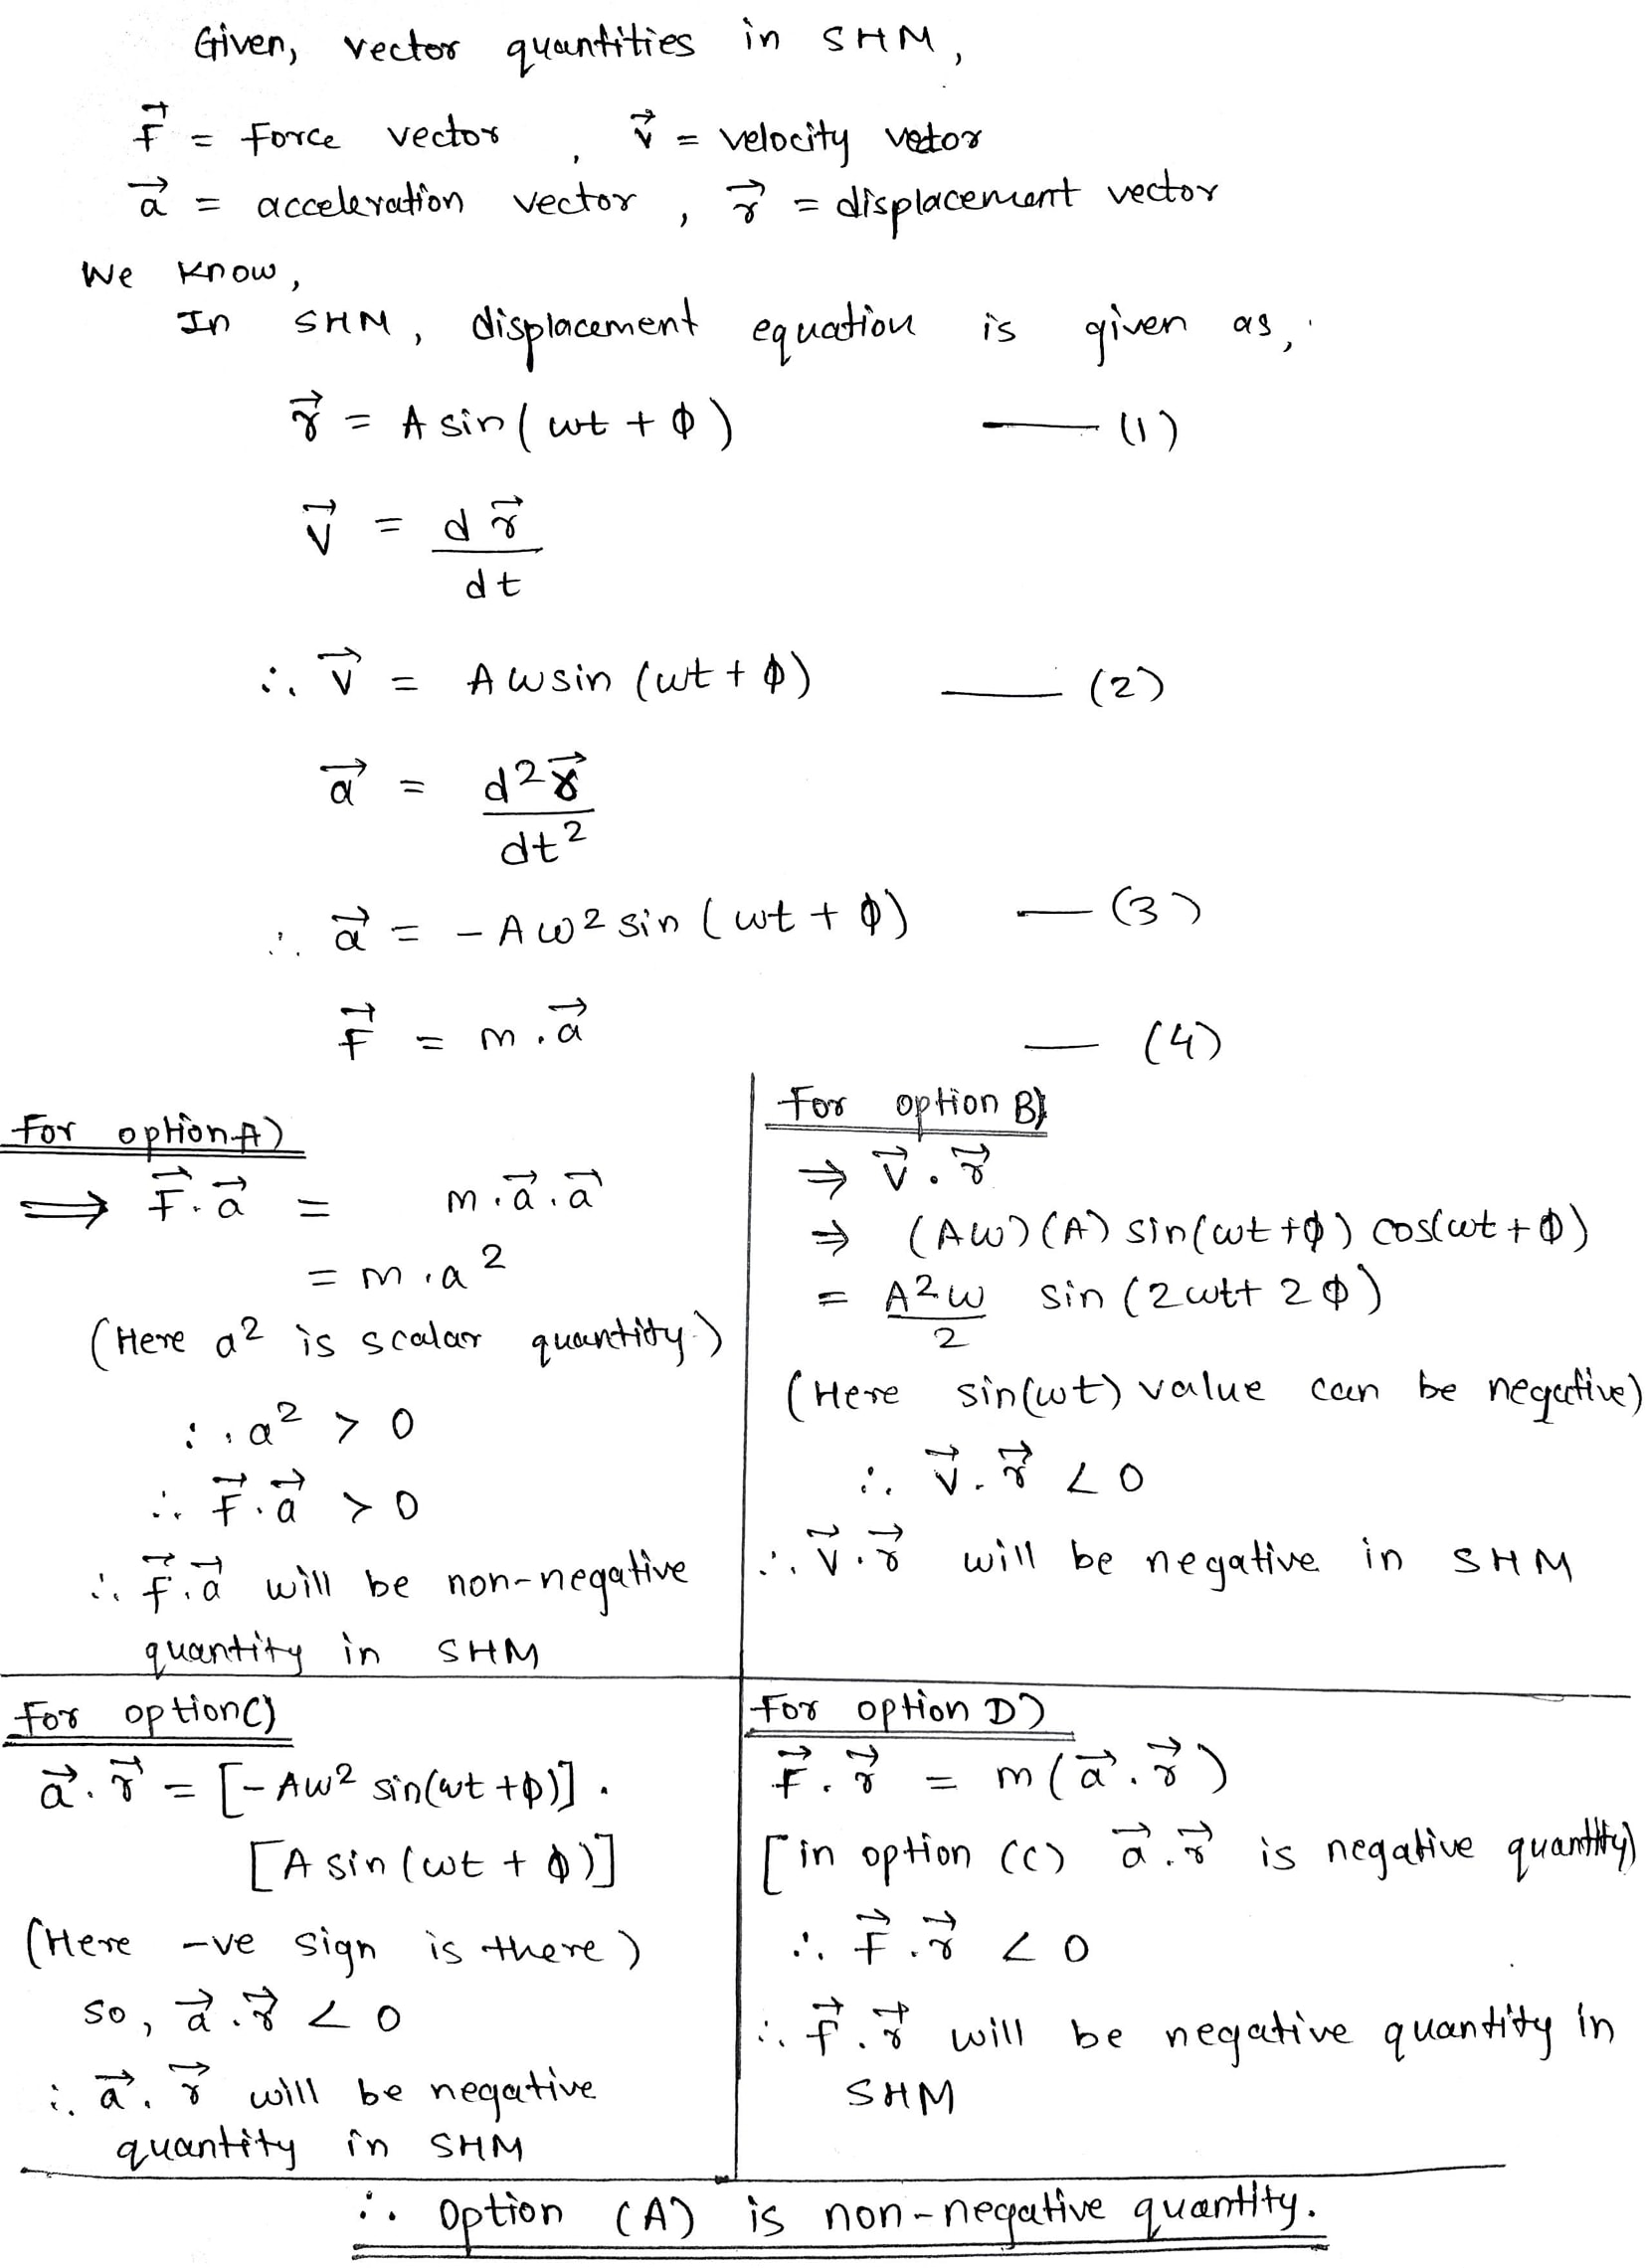 Given, vector quantities in SHM,
F⃗ = Force vector , v⃗ = velocity vetor
a⃗ = acceleration vector , r⃗ = displacement vector
We know,
In SHM, displacement equation is given as,
r⃗ = A sin(ωt + φ) —— (1)
v⃗ = dr⃗/dt
∴ v⃗ = Aωsin (ωt + φ) —— (2)
a⃗ = d²r⃗/dt²
∴ a⃗ = -Aω² sin (ωt + φ) — (3)
F⃗ = m.a⃗ — (4)
For option A)
⟹ F⃗.a⃗ = m.a⃗.a⃗
= m.a²
(Here a² is scalar quantity.)
∴ a² > 0
∴ F⃗.a⃗ > 0
∴ F⃗.a⃗ will be non-negative
quantity in SHM
For option B)
⇒ v⃗.r⃗
⇒ (Aω)(A) sin(ωt+φ) cos(ωt+φ)
= A²ω/2 sin (2ωt+ 2φ)
(Here sin(ωt) value can be negative)
∴ v⃗.r⃗ < 0
∴ v⃗.r⃗ will be negative in SHM
For option C)
a⃗.r⃗ = [-Aω² sin(ωt+φ)] .
[A sin (ωt + φ)]
(Here -ve sign is there)
so, a⃗.r⃗ < 0
∴ a⃗.r⃗ will be negative
quantity in SHM
For option D)
F⃗.r⃗ = m(a⃗.r⃗)
[in option (C) a⃗.r⃗ is negative quantity)
∴ F⃗.r⃗ < 0
∴ F⃗.r⃗ will be negative quantity in
SHM
∴ Option (A) is non-negative quantity.